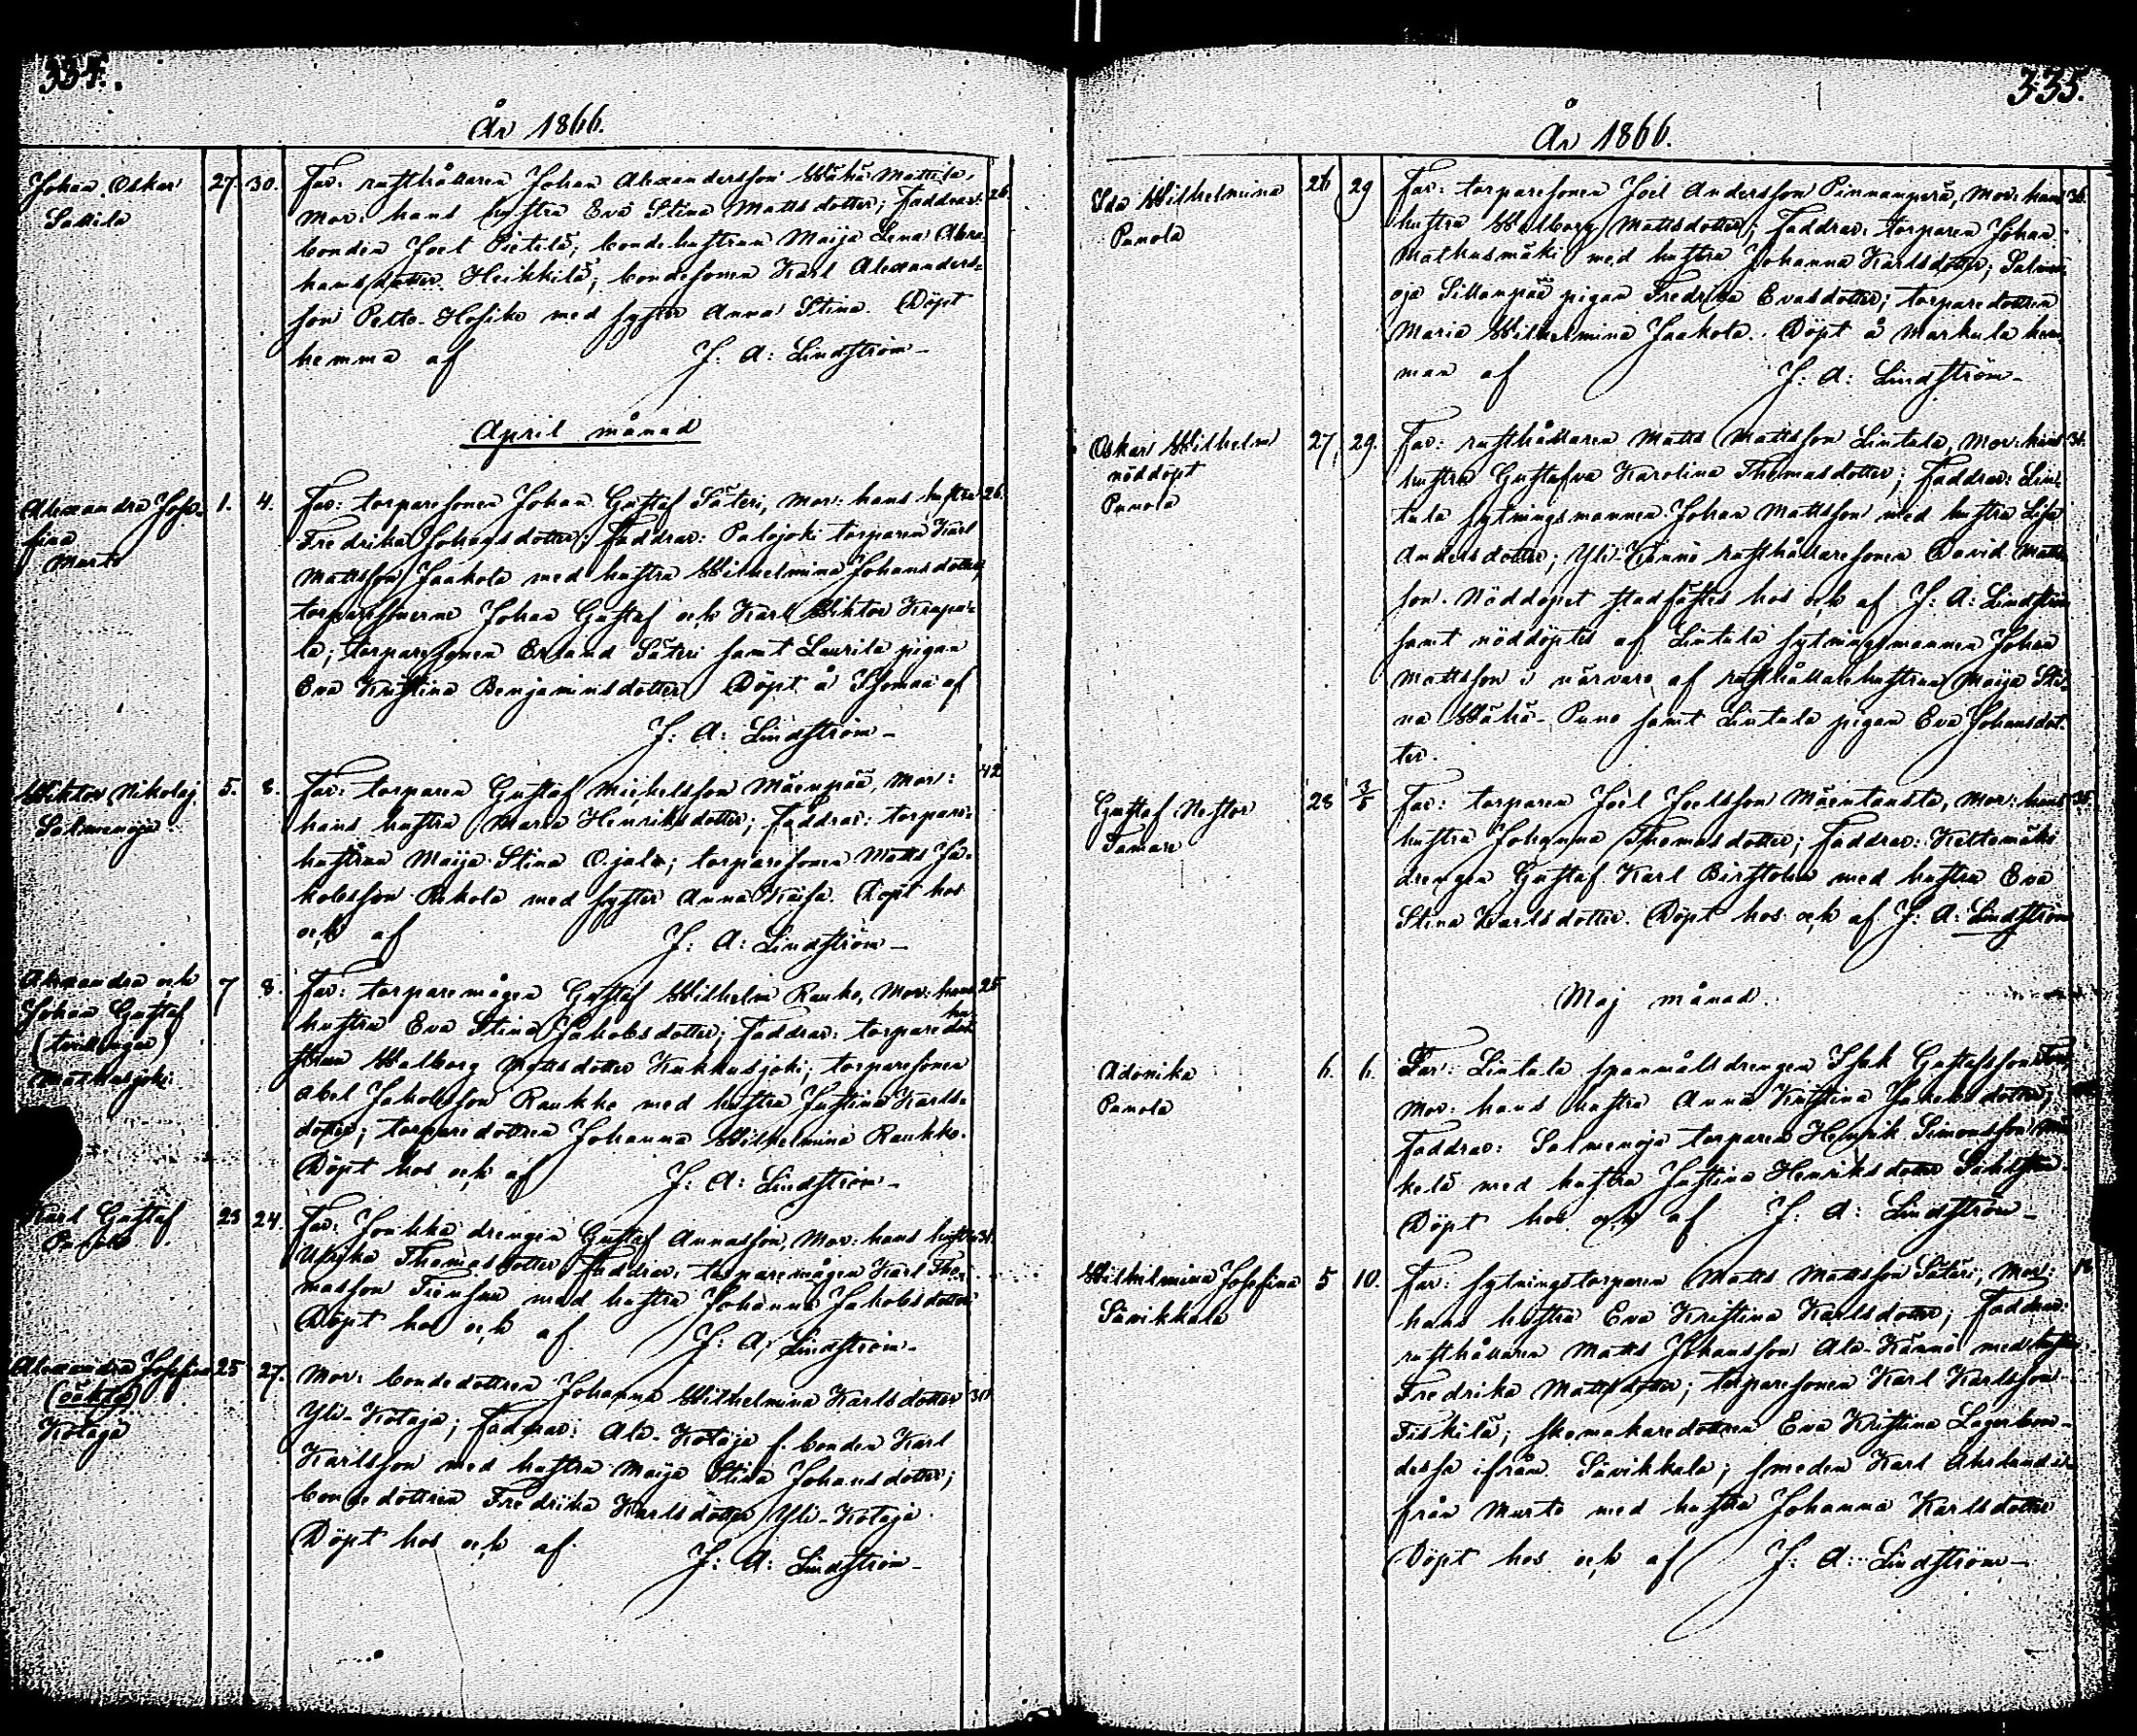 334.
År 1866.
Johan Oskar 27. 30. Far: rusthållaren Johan Alexandersson Wähä Mattila,
Sattila Mor: hans hustru Eva Stina Mattsdotter; Faddrar: 26.
bonden Joel Pietilä; bondehustrun Maija Lena Abra-
hamsdotter Heikkilä; bondesonen Karl Alexanders-
son Perho-Hosike med syster Anna Stina. Döpt
hemma af J: A: Lindström-
April månad
Alexandra Jose- 1. 4. Far: torparesonen Johan Gustaf Säteri, Mor: hans hustru 26.
fina Fredrika Johansdotter; Faddrar: Palojoki torparen Karl
Murto Mattsson Jaakola med hustru Wilhelmina Johansdotter;
torparesönerne Johan Gustaf och Karl Wiktor Krapa-
la; torparesonen Erland Säteri samt Laurila pigan
Eva Kristina Benjaminsdotter. Döpt å af
J: A: Lindström-
Wiktor Nikolaj 5. 8. Far: torparen Gustaf Michelsson Mäenpää, Mor: 42
Salmenoja hans hustru Maria Henriksdotter; Faddrar: torpare-
hustrun Maija Stina Ojala; torparesonen Matts Ja-
kobsson Rekola med syster Anna Kaisa. Döpt hos
och af J: A: Lindström-
Alexandra och 7 8. Far: torparemågen Gustaf Wilhelm Rauko, Mor: hans 25
Johan Gustaf hustru Eva Stina Jakobsdotter; Faddrar: torpare hu-
(tvillingar) strun Walborg Mattsdotter Kukkusjoki; torparesonen
Mathusjoki Abel Jakobsson Raukko med hustru Justina Karls-
dotter; torparedottren Johanna Wilhelmina Raukko.
Döpt hos och af J: A: Lindström-
Karl Gustaf 23 24. Far: Joukka drengen Gustaf Annasson, Mor: hans hustru 31.
Punola Ulrika Thomasdotter Faddrar: torparemågen Karl Tho-
masson med hustru Johanna Jakobsdotter
Döpt hos och af J: A: Lindström-
Alexandra Josefina 25 27. Mor: bondedottren Johanna Wilhelmina Karlsdotter 30
(oäkta) Yli-Kotaja; Faddrar: Ala-Kotaja f. bonden Karl
Kotaja Karlsson med hustru Maija Stina Johansdotter;
bondedottren Fredrika Karlsdotter Yli-Kotaja.
Döpt hos och af J: A: Lindström-
335.
År 1866.
Ida Wilhelmina 26 29 Far: torparesonen Joel Andersson Pinnanperä, Mor: hans 36.
Punola hustru Walborg Mattsdotter; Faddrar: torparen Johan
Mathusmäki med hustru Johanna Karlsdotter; Salmen-
oja Sillanpää pigan Fredrika Evasdotter; torparedottren
Maria Wilhelmina Jaakola. Döpt å Markula hem-
man af J: A: Lindström-
Oskar Wilhelm 27. 29. Far: rusthållaren Matts Mattsson Lintula, Mor: hans 31.
nöddöpt hustru Gustafva Karolina Thomasdotter; Faddrar: Lin-
Punola tula sytningsmannen Johan Mattsson med hustru Lisa
Andersdotter; Yli-Kännö rusthållaresonen David Matts-
son. Nöddopet stadfästes hos och af J: A: Lindström
samt nöddöptes af Lintula sytningsmannen Johan
Mattsson i närvaro af rusthållarehustrun Maija Sti-
na Wähä-Puno samt Lintula pigan Eva Johansdot-
ter.
Gustaf Nestor 28 3/5 Far: torparen Joel Joelsson Mäentausta, Mor: hans 35.
Tamare hustru Johanna Thomasdotter; Faddrar: Kettomäki
drengen Gustaf Karl Birstolm med hustru Eva
Stina Karlsdotter. Döpt hos och af J: A: Lindström
Maj månad.
Adonika 6. 6. Far: Lintula spanmålsdrengen Isak Gustafsson
Punola Mor: hans hustru Anna Kristina Jakobsdotter;
Faddrar: Salmenoja torparen Henrik Simonsson
kelä med hustru Justina Henriksdotter
Döpt hos och af J: A: Lindström-
Wilhelmina Josefina 5 10. Far: sytningstorparen Matts Mattsson Säteri, Mor:
Sävikkala hans hustru Eva Kristina Karlsdotter; Faddrar:
rusthållaren Matts Johansson Ala-Kännö med hustru
Fredrika Mattsdotter; torparesonen Karl Karlsson
Tiskilä; skomakaredottren Eva Kristina Lagerbom-
dessa ifrån Sävikkala; smeden Karl Ahrlund i-
från Murto med hustru Johanna Karlsdotter
Döpt hos och af J: A: Lindström-